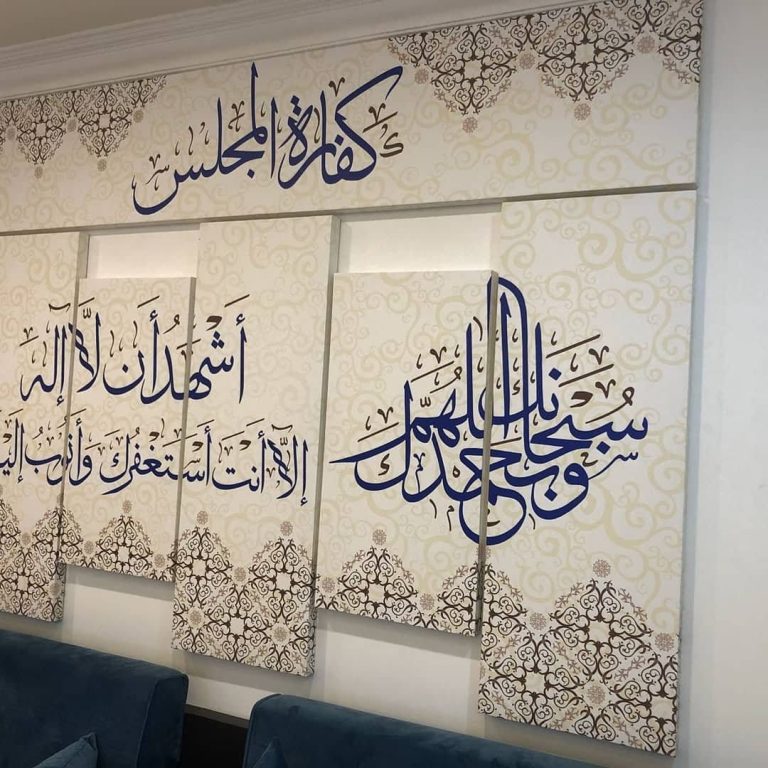 كفارة المجلس
سبحانك اللهم
وبحمدك
أشهد أن لا إله
إلا أنت أستغفرك وأتوب إليك